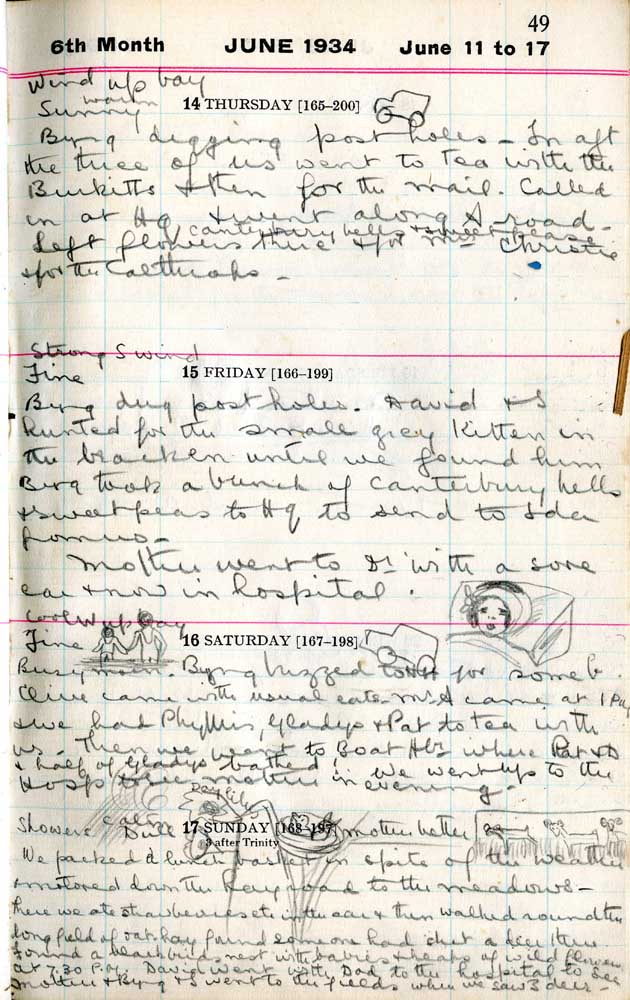 49
6th Month JUNE 1934 June 11 to 17
Wind up bay
Sunny warm
14 THURSDAY [165–200]
Byng digging post holes – In aft
the three of us went to tea with the
Burkitts & then for the mail. Called
in at Hq & went along A road –
Left flowers there & for Mrs Christie
canterbury bells & sweet peas
& for the
Strong S wind
Fine
15 FRIDAY [166–199]
Byng dug post holes. David & I
hunted for the small grey kitten in
the bracken until we found him
Byng took a bunch of canterbury bells
& sweet peas to Hq to send to Ida
from us –
Mother went to Dr with a sore
ear & now in hospital.
Cool W up bay
Fine
16 SATURDAY [167–198]
Busy morn. Byng buzzed to Hq for some b.
Clive came with usual eats. Mrs A came at 1 P.M.
& we had Phyllis, Gladys & Pat to tea with
us – Then we went to Boat Hbr where Pat & D
& half of Gladys bathed. We went up to the
Hosp mother in evening.
Day lily
Showers calm
Dull
17 SUNDAY [168–197]
3 after Trinity
mother better
We packed a lunch basket in spite of the weather
& motored down the road to the meadows –
here we ate strawberries etc in the car & then walked round the
long field of oat hay found someone had shot a deer there
Found a blackbirds nest with babies & heaps of wild flowers
at 7.30 P.M. David went with Dad to the hospital to see
mother & Byng & I went to the fields when we saw 3 deer –